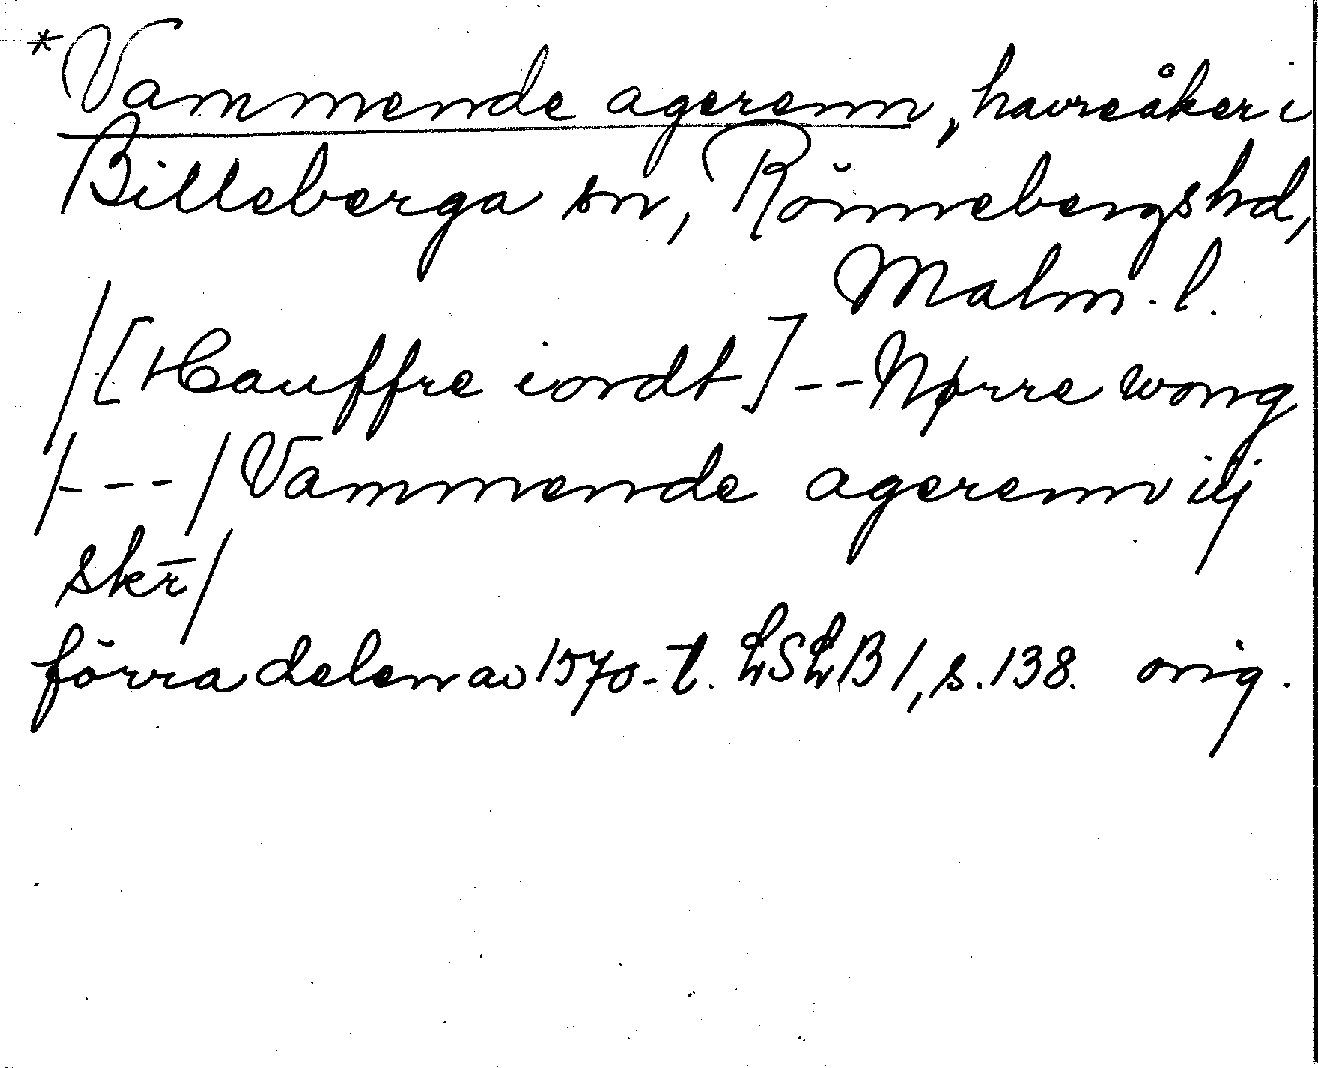 *Vammende agerenn, havreåker i
Billeberga sn, Rönnebergs hd,
Malm. l.
/[Hauffre iordt] -- Nørre wong
/---/ Vammende agerenn iij
skr̄/
förra delen av 1570-t. LSLB 1, s. 138. orig.